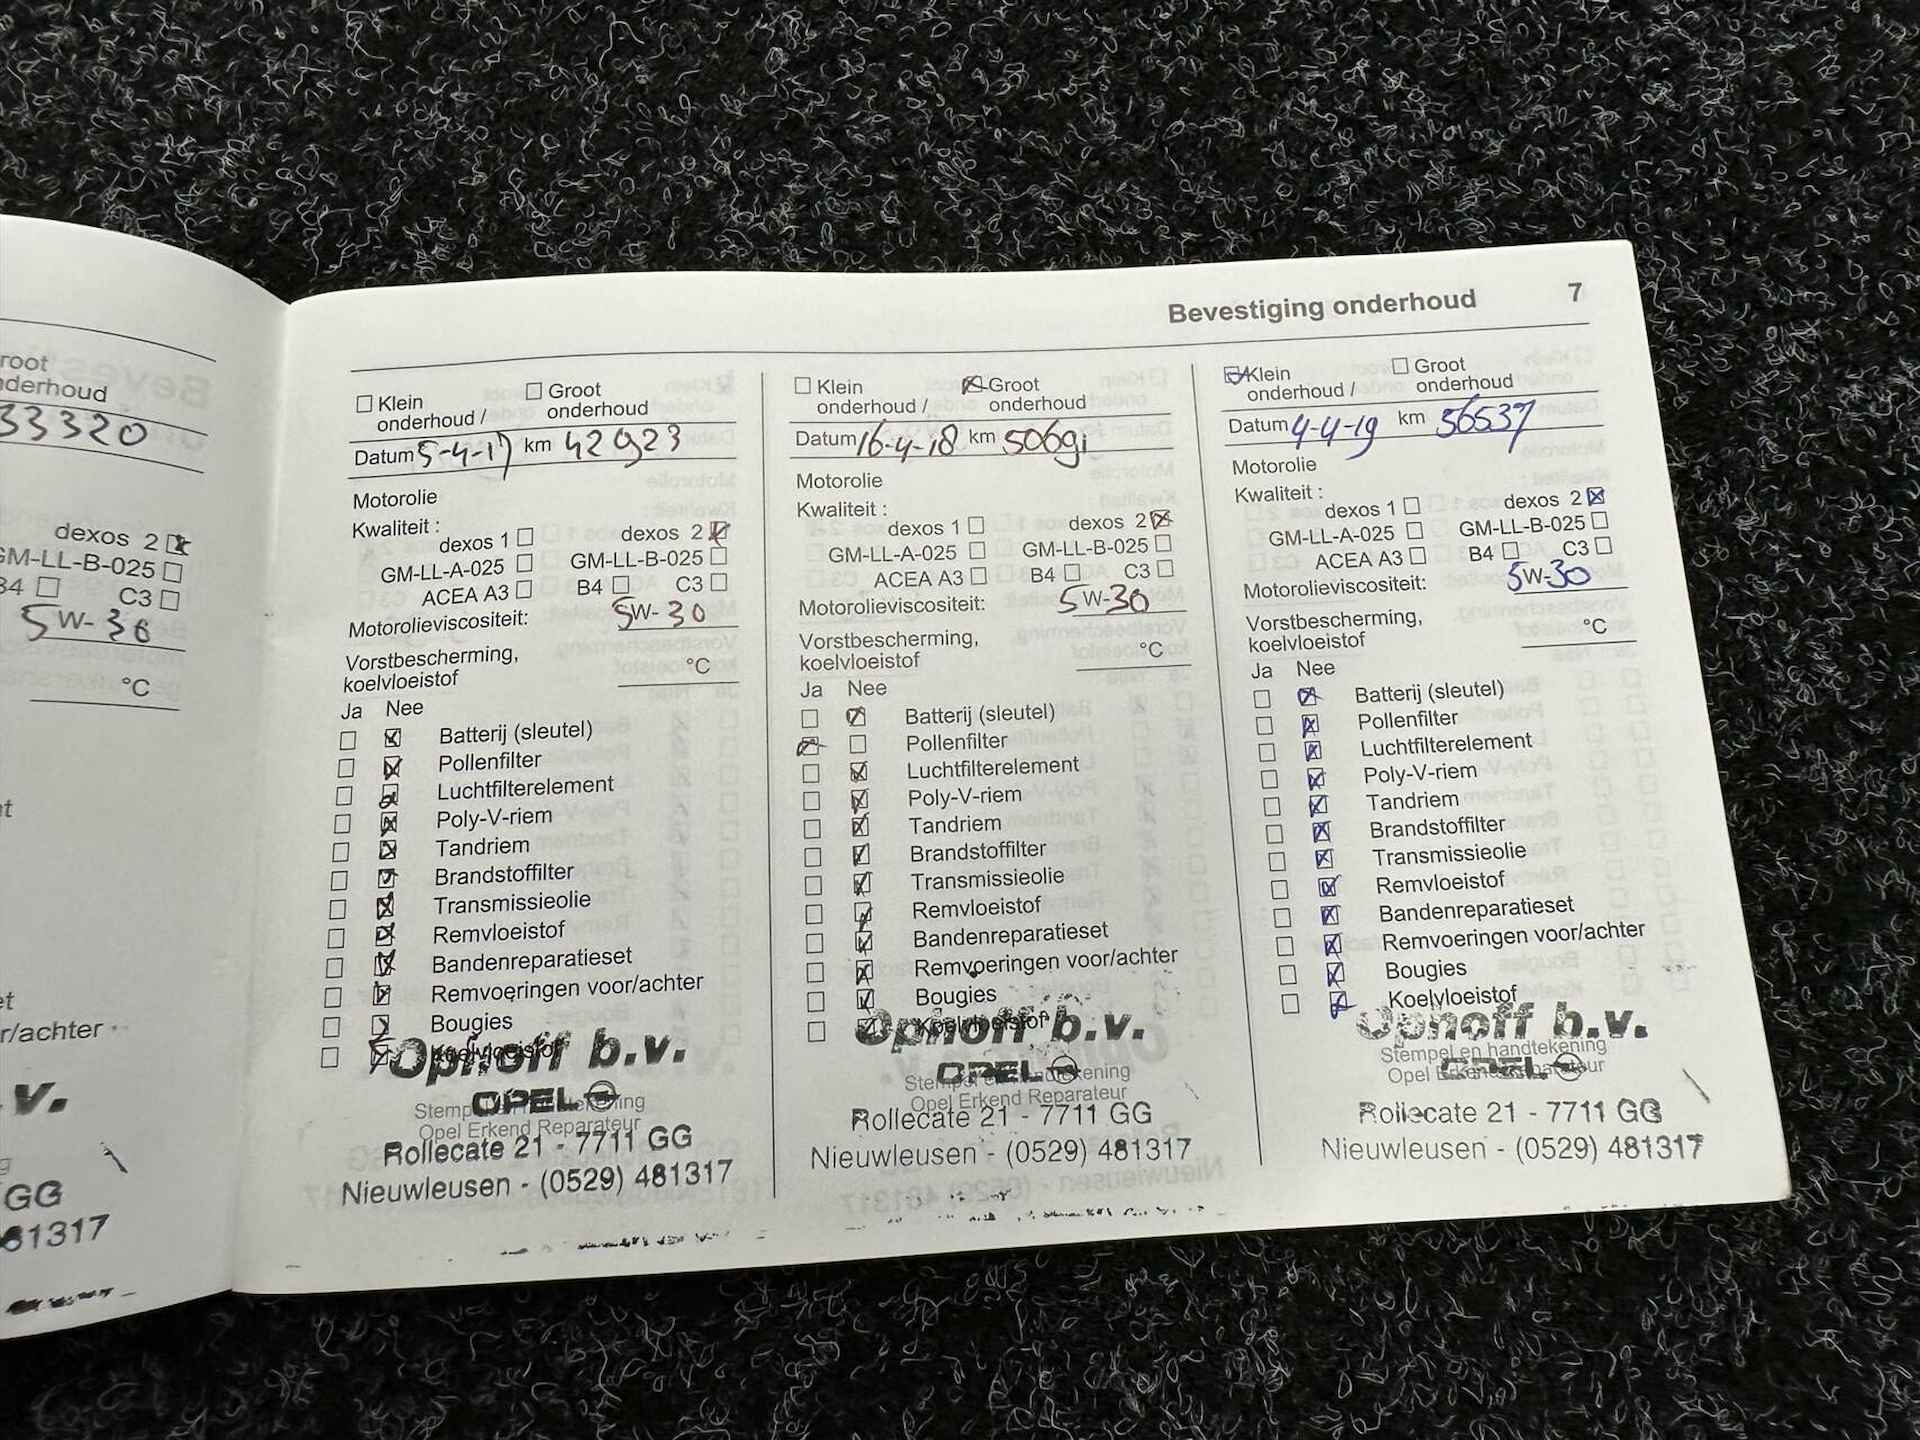 Groot
onderhoud
33320
dexos 2
GM-LL-B-025
B4 C3
5W-30
°C
r/achter
v.
GG
81317
Bevestiging onderhoud 7
Klein onderhoud / Groot onderhoud
Datum 5-4-17 km 42923
Motorolie
Kwaliteit :
dexos 1 dexos 2
GM-LL-A-025 GM-LL-B-025
ACEA A3 B4 C3
Motorolieviscositeit: 5W-30
Vorstbescherming,
koelvloeistof °C
Ja Nee
Batterij (sleutel)
Pollenfilter
Luchtfilterelement
Poly-V-riem
Tandriem
Brandstoffilter
Transmissieolie
Remvloeistof
Bandenreparatieset
Remvoeringen voor/achter
Bougies
Koelvloeistof
Ophoff b.v.
OPEL
Stempel en handtekening
Opel Erkend Reparateur
Rollecate 21 - 7711 GG
Nieuwleusen - (0529) 481317
Klein onderhoud / Groot onderhoud
Datum 16-4-18 km 50691
Motorolie
Kwaliteit :
dexos 1 dexos 2
GM-LL-A-025 GM-LL-B-025
ACEA A3 B4 C3
Motorolieviscositeit: 5W-30
Vorstbescherming,
koelvloeistof °C
Ja Nee
Batterij (sleutel)
Pollenfilter
Luchtfilterelement
Poly-V-riem
Tandriem
Brandstoffilter
Transmissieolie
Remvloeistof
Bandenreparatieset
Remvoeringen voor/achter
Bougies
Koelvloeistof
Ophoff b.v.
OPEL
Stempel en handtekening
Opel Erkend Reparateur
Rollecate 21 - 7711 GG
Nieuwleusen - (0529) 481317
Klein onderhoud / Groot onderhoud
Datum 4-4-19 km 56537
Motorolie
Kwaliteit :
dexos 1 dexos 2
GM-LL-A-025 GM-LL-B-025
ACEA A3 B4 C3
Motorolieviscositeit: 5W-30
Vorstbescherming,
koelvloeistof °C
Ja Nee
Batterij (sleutel)
Pollenfilter
Luchtfilterelement
Poly-V-riem
Tandriem
Brandstoffilter
Transmissieolie
Remvloeistof
Bandenreparatieset
Remvoeringen voor/achter
Bougies
Koelvloeistof
Ophoff b.v.
Stempel en handtekening
OPEL
Opel Erkend Reparateur
Rollecate 21 - 7711 GG
Nieuwleusen - (0529) 481317